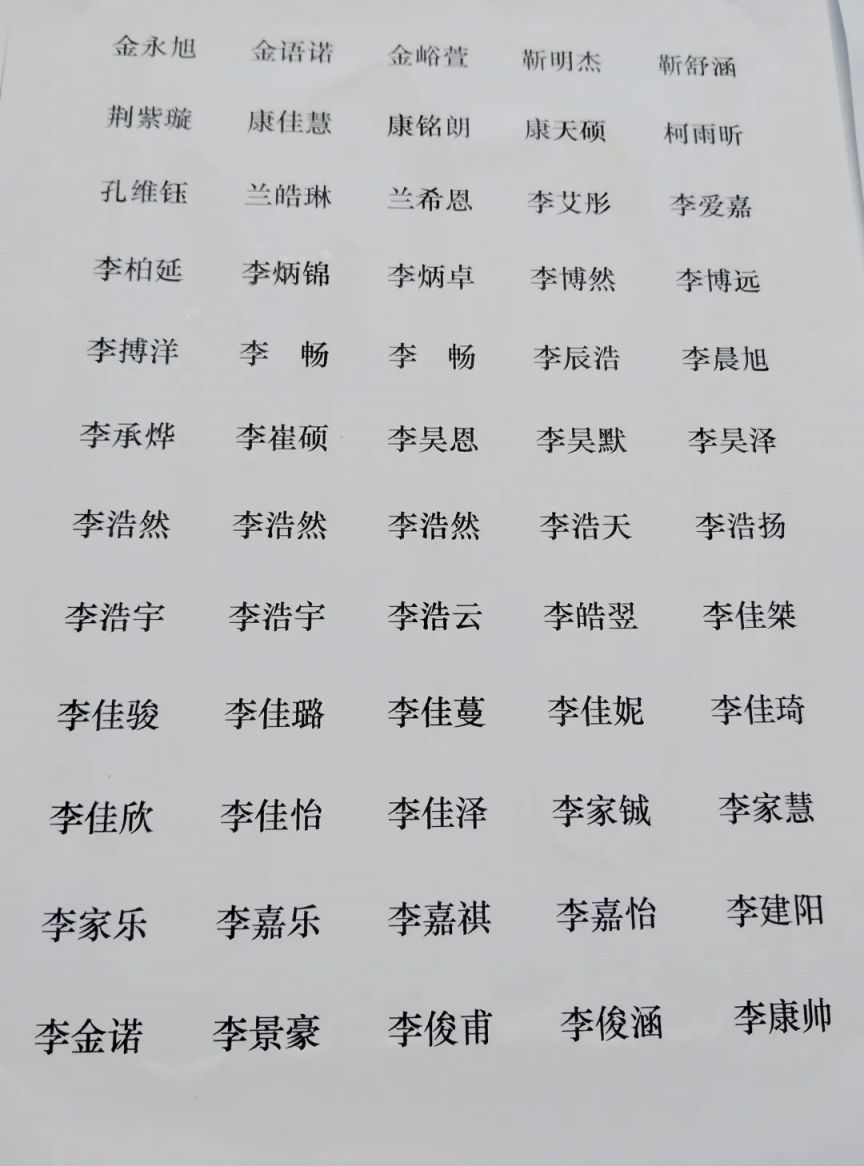 金永旭 金语诺 金峪萱 靳明杰 靳舒涵
荆紫璇 康佳慧 康铭朗 康天硕 柯雨昕
孔维钰 兰皓琳 兰希恩 李艾彤 李爱嘉
李柏延 李炳锦 李炳卓 李博然 李博远
李搏洋 李　畅 李　畅 李辰浩 李晨旭
李承烨 李崔硕 李昊恩 李昊默 李昊泽
李浩然 李浩然 李浩然 李浩天 李浩扬
李浩宇 李浩宇 李浩云 李皓翌 李佳桀
李佳骏 李佳璐 李佳蔓 李佳妮 李佳琦
李佳欣 李佳怡 李佳泽 李家铖 李家慧
李家乐 李嘉乐 李嘉祺 李嘉怡 李建阳
李金诺 李景豪 李俊甫 李俊涵 李康帅